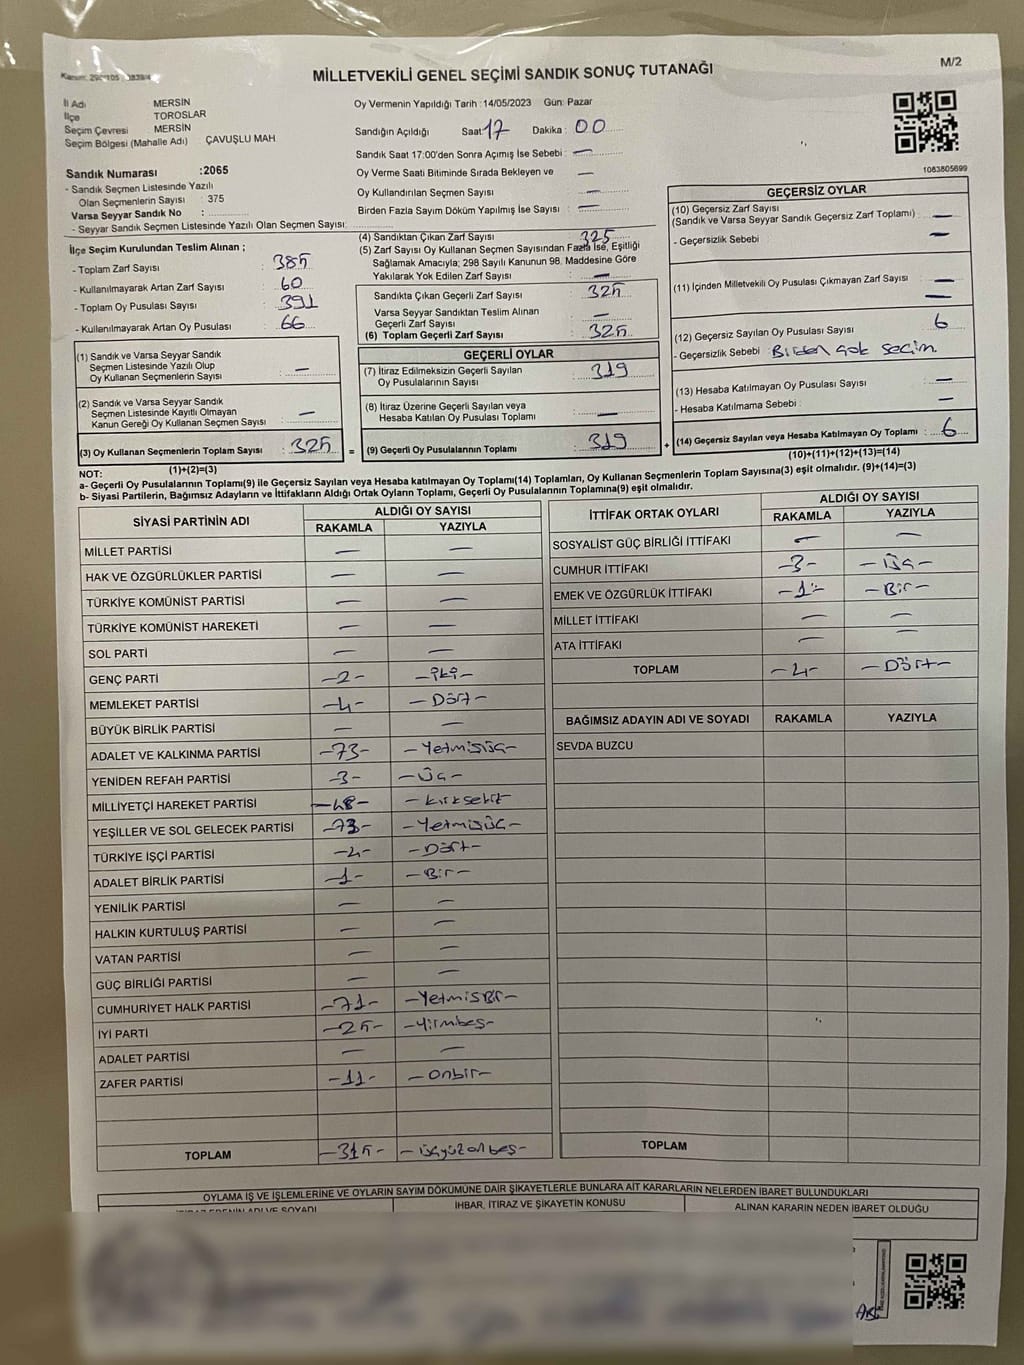 Kanun: 298/105
M/2
MİLLETVEKİLİ GENEL SEÇİMİ SANDIK SONUÇ TUTANAĞI
İl Adı MERSİN
İlçe TOROSLAR
Seçim Çevresi MERSİN
Seçim Bölgesi (Mahalle Adı) ÇAVUŞLU MAH
Sandık Numarası :2065
- Sandık Seçmen Listesinde Yazılı
Olan Seçmenlerin Sayısı : 375
Varsa Seyyar Sandık No :
- Seyyar Sandık Seçmen Listesinde Yazılı Olan Seçmen Sayısı:
Oy Vermenin Yapıldığı Tarih :14/05/2023 Gün: Pazar
Sandığın Açıldığı Saat 17 Dakika : 00
Sandık Saat 17:00'den Sonra Açımış İse Sebebi : —
Oy Verme Saati Bitiminde Sırada Bekleyen ve —
Oy Kullandırılan Seçmen Sayısı —
Birden Fazla Sayım Döküm Yapılmış İse Sayısı : —
1083805699
İlçe Seçim Kurulundan Teslim Alınan ;
- Toplam Zarf Sayısı : 385
- Kullanılmayarak Artan Zarf Sayısı : 60
- Toplam Oy Pusulası Sayısı : 391
- Kullanılmayarak Artan Oy Pusulası : 66
(1) Sandık ve Varsa Seyyar Sandık
Seçmen Listesinde Yazılı Olup
Oy Kullanan Seçmenlerin Sayısı : —
(2) Sandık ve Varsa Seyyar Sandık
Seçmen Listesinde Kayıtlı Olmayan
Kanun Gereği Oy Kullanan Seçmen Sayısı : —
(3) Oy Kullanan Seçmenlerin Toplam Sayısı : 325
(1)+(2)=(3)
(4) Sandıktan Çıkan Zarf Sayısı 325
(5) Zarf Sayısı Oy Kullanan Seçmen Sayısından Fazla İse, Eşitliği
Sağlamak Amacıyla; 298 Sayılı Kanunun 98. Maddesine Göre
Yakılarak Yok Edilen Zarf Sayısı : —
Sandıkta Çıkan Geçerli Zarf Sayısı : 325
Varsa Seyyar Sandıktan Teslim Alınan
Geçerli Zarf Sayısı : —
(6) Toplam Geçerli Zarf Sayısı : 325
GEÇERLİ OYLAR
(7) İtiraz Edilmeksizin Geçerli Sayılan
Oy Pusulalarının Sayısı : 319
(8) İtiraz Üzerine Geçerli Sayılan veya
Hesaba Katılan Oy Pusulası Toplamı : —
= (9) Geçerli Oy Pusulalarının Toplamı : 319
GEÇERSİZ OYLAR
(10) Geçersiz Zarf Sayısı
(Sandık ve Varsa Seyyar Sandık Geçersiz Zarf Toplamı) : —
- Geçersizlik Sebebi : —
(11) İçinden Milletvekili Oy Pusulası Çıkmayan Zarf Sayısı : —
—
(12) Geçersiz Sayılan Oy Pusulası Sayısı 6
- Geçersizlik Sebebi : Birden çok seçim.
(13) Hesaba Katılmayan Oy Pusulası Sayısı : —
- Hesaba Katılmama Sebebi : —
+ (14) Geçersiz Sayılan veya Hesaba Katılmayan Oy Toplamı : 6
(10)+(11)+(12)+(13)=(14)
NOT:
a- Geçerli Oy Pusulalarının Toplamı(9) ile Geçersiz Sayılan veya Hesaba katılmayan Oy Toplamı(14) Toplamları, Oy Kullanan Seçmenlerin Toplam Sayısına(3) eşit olmalıdır. (9)+(14)=(3)
b- Siyasi Partilerin, Bağımsız Adayların ve İttifakların Aldığı Ortak Oyların Toplamı, Geçerli Oy Pusulalarının Toplamına(9) eşit olmalıdır.
SİYASİ PARTİNİN ADI ALDIĞI OY SAYISI
RAKAMLA YAZIYLA
MİLLET PARTİSİ — —
HAK VE ÖZGÜRLÜKLER PARTİSİ — —
TÜRKİYE KOMÜNİST PARTİSİ — —
TÜRKİYE KOMÜNİST HAREKETİ — —
SOL PARTİ — —
GENÇ PARTİ -2- -iki-
MEMLEKET PARTİSİ -4- -Dört-
BÜYÜK BİRLİK PARTİSİ — —
ADALET VE KALKINMA PARTİSİ -73- -Yetmişüç-
YENİDEN REFAH PARTİSİ -3- -Üç-
MİLLİYETÇİ HAREKET PARTİSİ -48- -kırksekiz
YEŞİLLER VE SOL GELECEK PARTİSİ -73- -Yetmişüç-
TÜRKİYE İŞÇİ PARTİSİ -4- -Dört-
ADALET BİRLİK PARTİSİ -1- -Bir-
YENİLİK PARTİSİ — —
HALKIN KURTULUŞ PARTİSİ — —
VATAN PARTİSİ — —
GÜÇ BİRLİĞİ PARTİSİ — —
CUMHURİYET HALK PARTİSİ -71- -Yetmişbir-
İYİ PARTİ -25- -Yirmbeş-
ADALET PARTİSİ — —
ZAFER PARTİSİ -11- -Onbir-
TOPLAM -315- -üçyüzonbeş-
İTTİFAK ORTAK OYLARI ALDIĞI OY SAYISI
RAKAMLA YAZIYLA
SOSYALİST GÜÇ BİRLİĞİ İTTİFAKI — —
CUMHUR İTTİFAKI -3- -Üç-
EMEK VE ÖZGÜRLÜK İTTİFAKI -1- -Bir-
MİLLET İTTİFAKI — —
ATA İTTİFAKI — —
TOPLAM -4- -Dört-
BAĞIMSIZ ADAYIN ADI VE SOYADI RAKAMLA YAZIYLA
SEVDA BUZCU
TOPLAM
OYLAMA İŞ VE İŞLEMLERİNE VE OYLARIN SAYIM DÖKÜMÜNE DAİR ŞİKAYETLERLE BUNLARA AİT KARARLARIN NELERDEN İBARET BULUNDUKLARI
İTİRAZ EDENİN ADI VE SOYADI İHBAR, İTİRAZ VE ŞİKAYETİN KONUSU ALINAN KARARIN NEDEN İBARET OLDUĞU